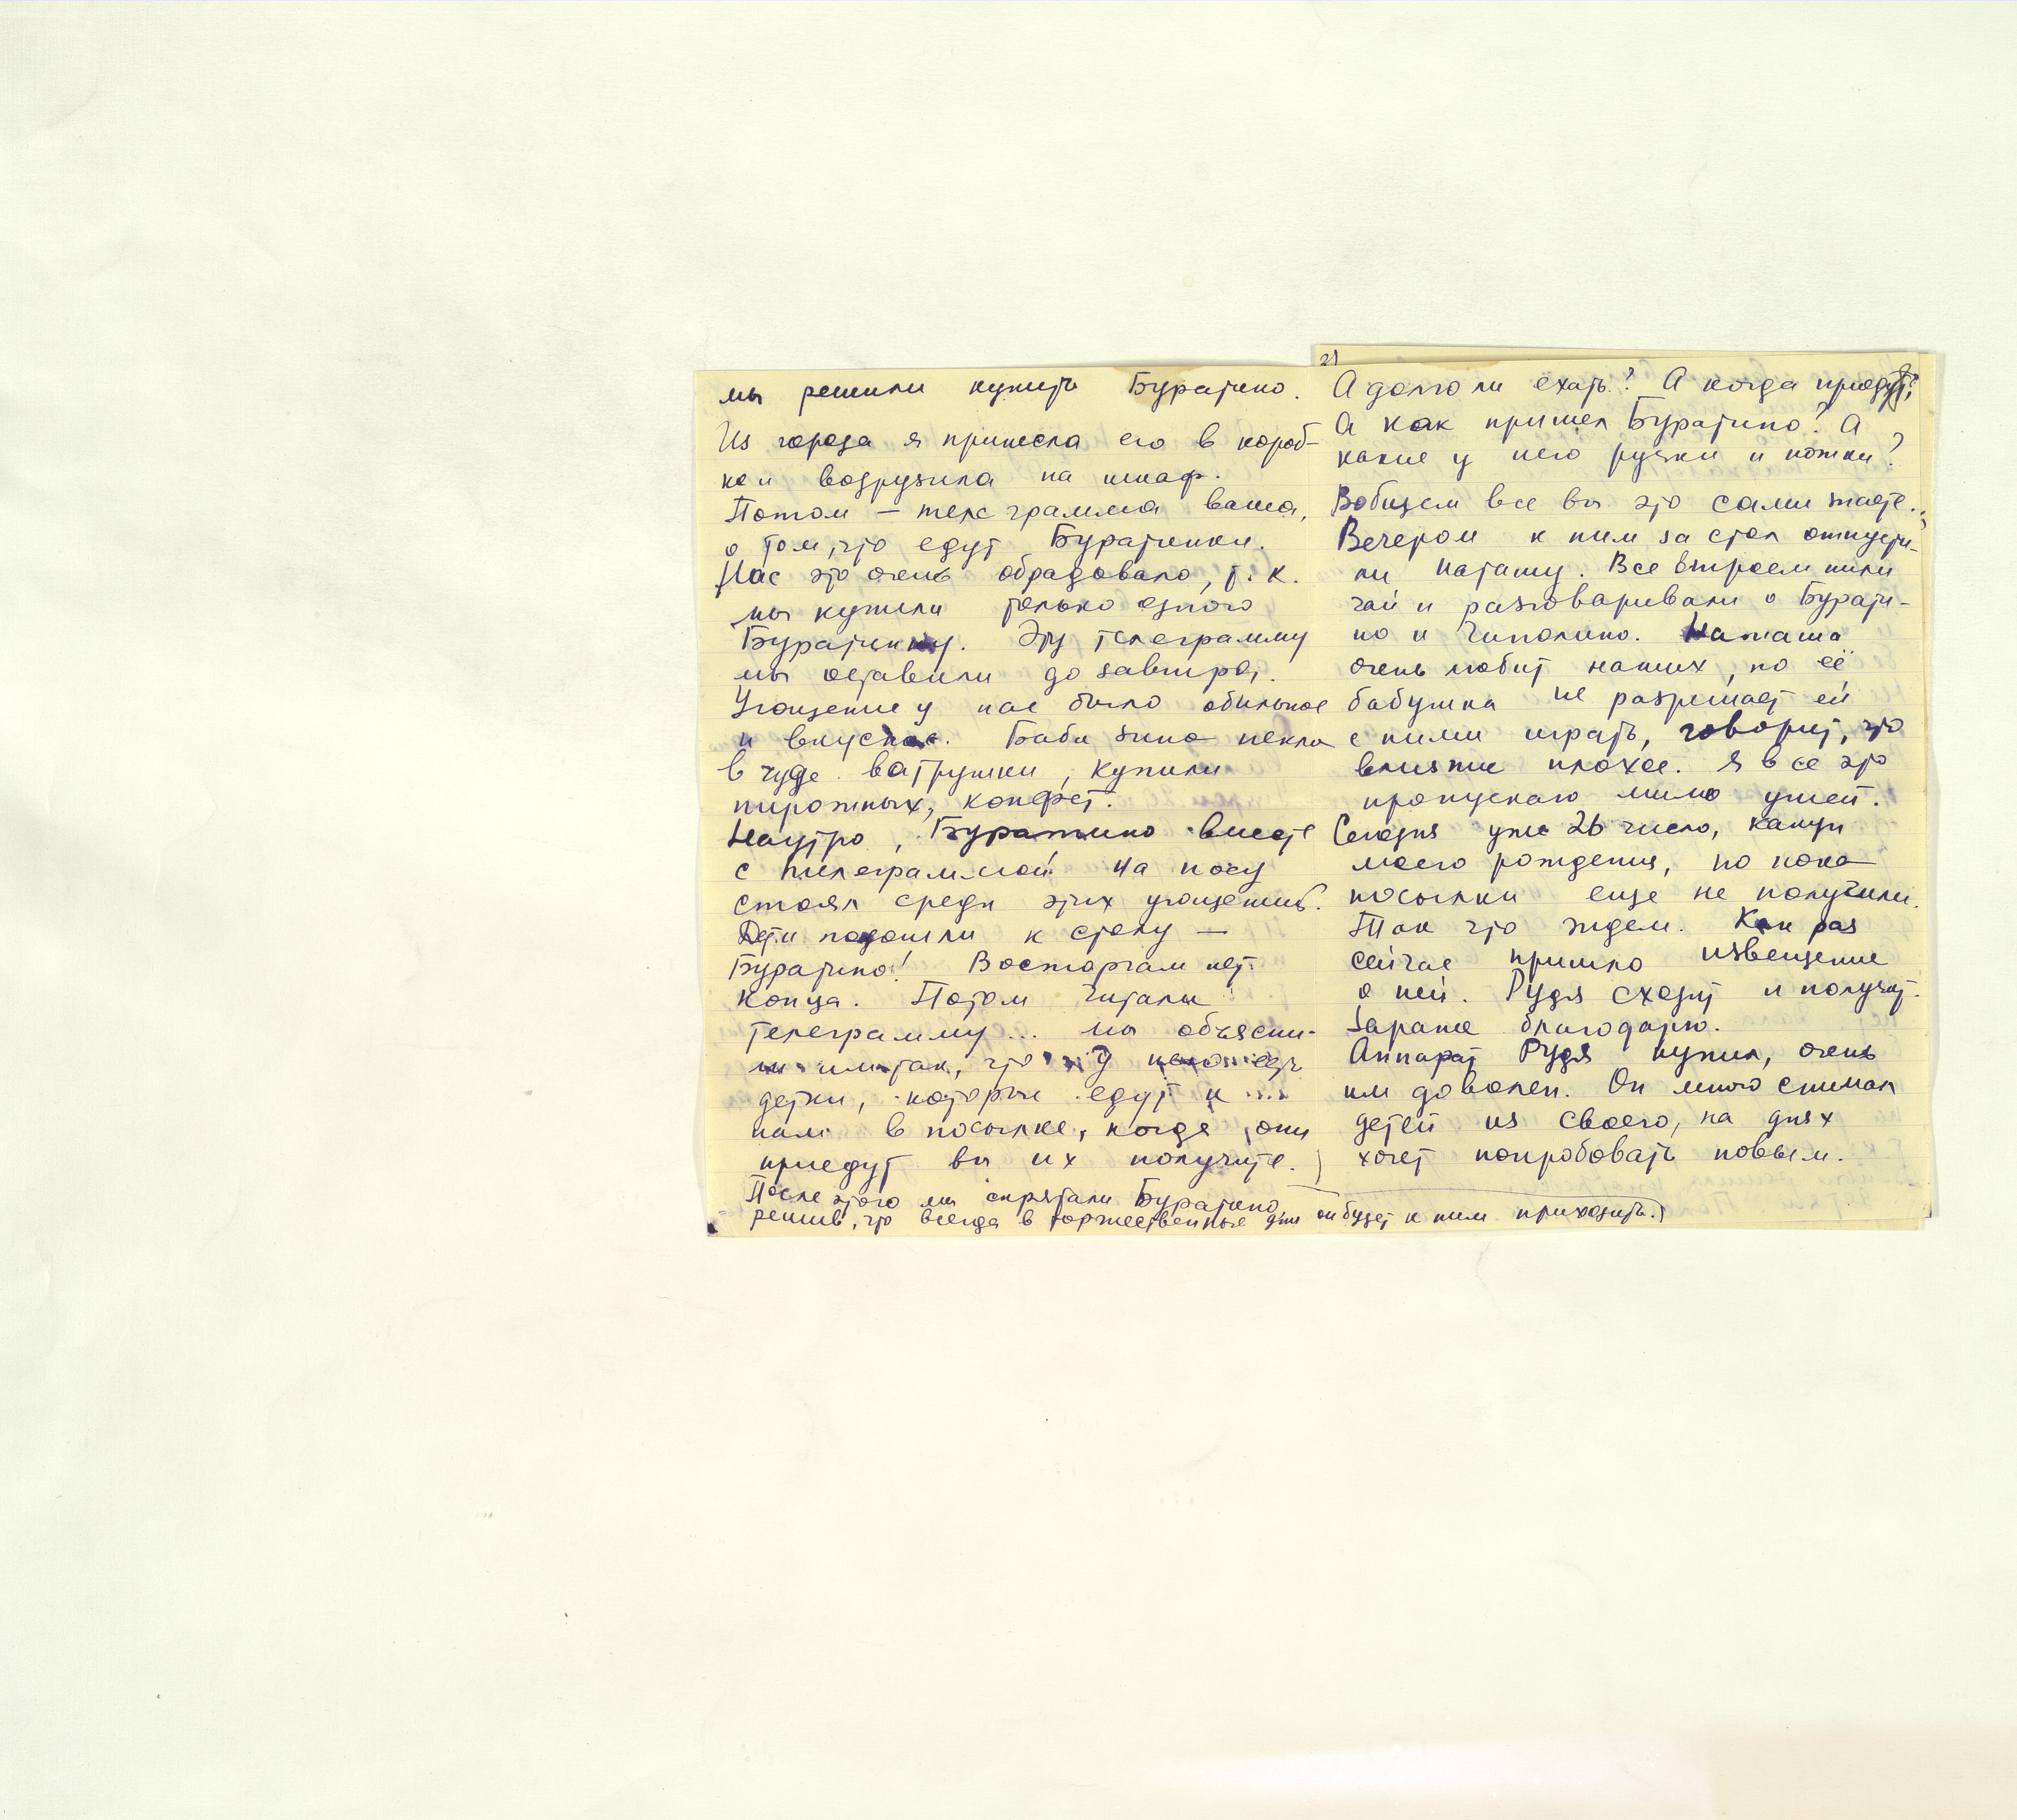 мы решили купить Буратино.
Из города я принесла его в короб-
ке и водрузила на шкаф.
Потом – телеграмма ваша,
о том, что едут Буратинки.
Нас это очень обрадовало, т. к.
мы купили только одного
Буратинку. Эту телеграмму
мы оставили до завтра.
Угощение у нас было обильное
и вкусное. Баба Зина пекла
в чуде ватрушки, купили
пирожных, конфет.
Наутро, Буратино вместе
с телеграммой на носу
стоял среди этих угощений.
Дети подошли к столу —
Буратино! Восторгам нет
конца. Потом читали
телеграмму... мы объясни-
ли им так, что у него есть
детки, которые едут к
нам в посылке, когда они
приедут вы их получите.
После этого мы спрятали Буратино,
решив, что всегда в торжественные дни он будет к ним приходить.)
2)
А долго ли ехать? А когда приедут?
А как пришел Буратино? А
какие у него ручки и ножки?
Вобщем все вы это сами знаете..
Вечером к ним за стол отпусти-
ли Наташу. Все втроем пили
чай и разговаривали о Бурати-
но и Чиполино. Наташа
очень любит наших, но её
бабушка не разрешает ей
с ними играть, говорит, что
влияние плохое. Я все это
пропускаю мимо ушей.
Сегодня уже 26 число, канун
моего рождения, но пока
посылки еще не получили.
Так что ждем. Как раз
сейчас пришло извещение
о ней. Рудя сходит и получит.
Заранее благодарю.
Аппарат Рудя купил, очень
им доволен. Он много снимал
детей из своего, на днях
хочет попробовать новым.